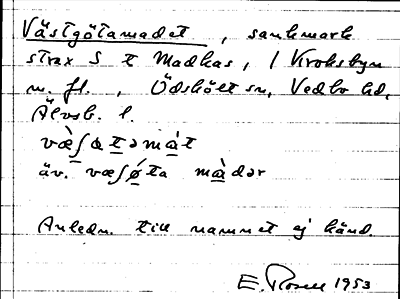 Västgötamadet, sankmark
strax S t Madkas, i Kroksbyn
m. fl., Ödskölt sn, Vedbo hd,
Älvsb. l.
væ̀ʃɑtəmát
äv. væʃǿta màdər
Anledn. till namnet ej känd.
E. Rosell 1953